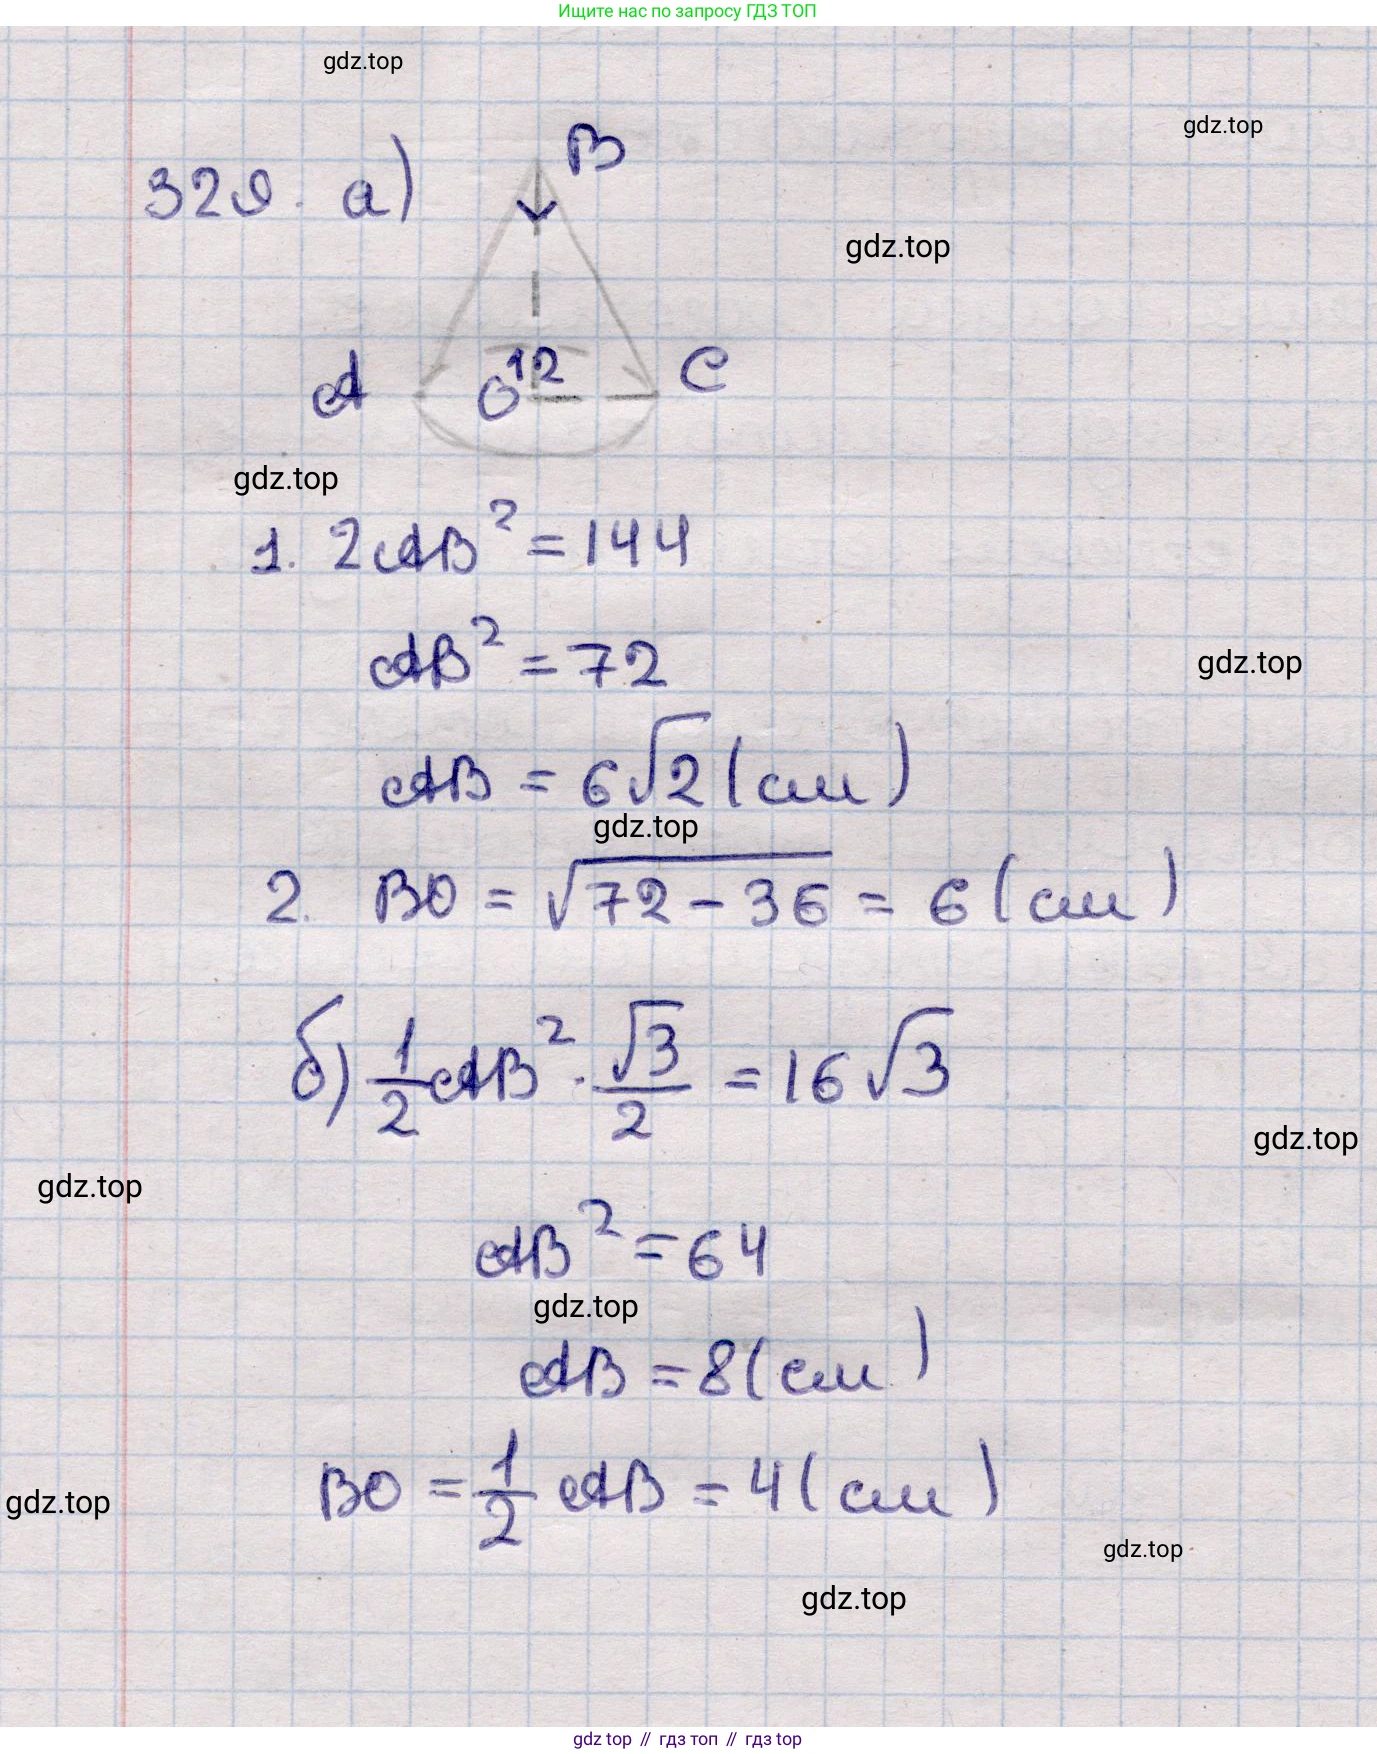 Ищите нас по запросу ГДЗ ТОП
gdz.top
gdz.top
329. а)
B
gdz.top
A
O
12
C
gdz.top
1. 2AB² = 144
AB² = 72
gdz.top
AB = 6√2 (см)
gdz.top
2. BO = √72 - 36 = 6 (см)
б) 1/2 AB² · √3/2 = 16√3
gdz.top
gdz.top
AB² = 64
gdz.top
AB = 8 (см)
BO = 1/2 AB = 4 (см)
gdz.top
gdz.top
gdz.top
gdz top // гдз топ // гдз top